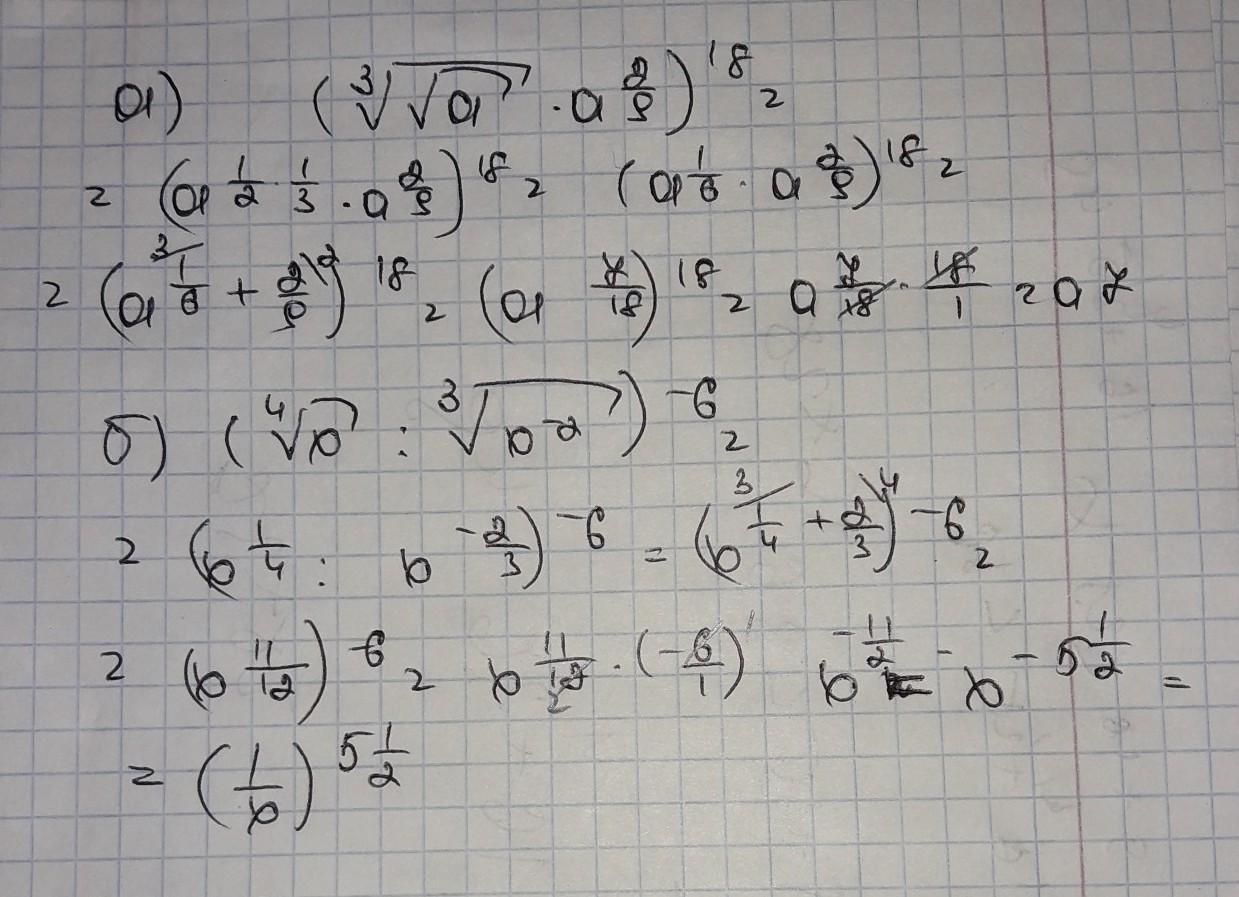 а) (∛√a · a^(2/9))^18 =
= (a^(1/2 · 1/3) · a^(2/9))^18 = (a^(1/6) · a^(2/9))^18 =
= (a^(³⁄1/6 + 2/9\²))^18 = (a^(7/18))^18 = a^(7/18 · 18/1) = a^7
б) (∜b : ∛(b^-2))^-6 =
= (b^(1/4) : b^(-2/3))^-6 = (b^(³⁄1/4 + 2/3\⁴))^-6 =
= (b^(11/12))^-6 = b^(11/12 · (-6/1)) b^(-11/2) - b^(-5 1/2) =
= (1/b)^(5 1/2)